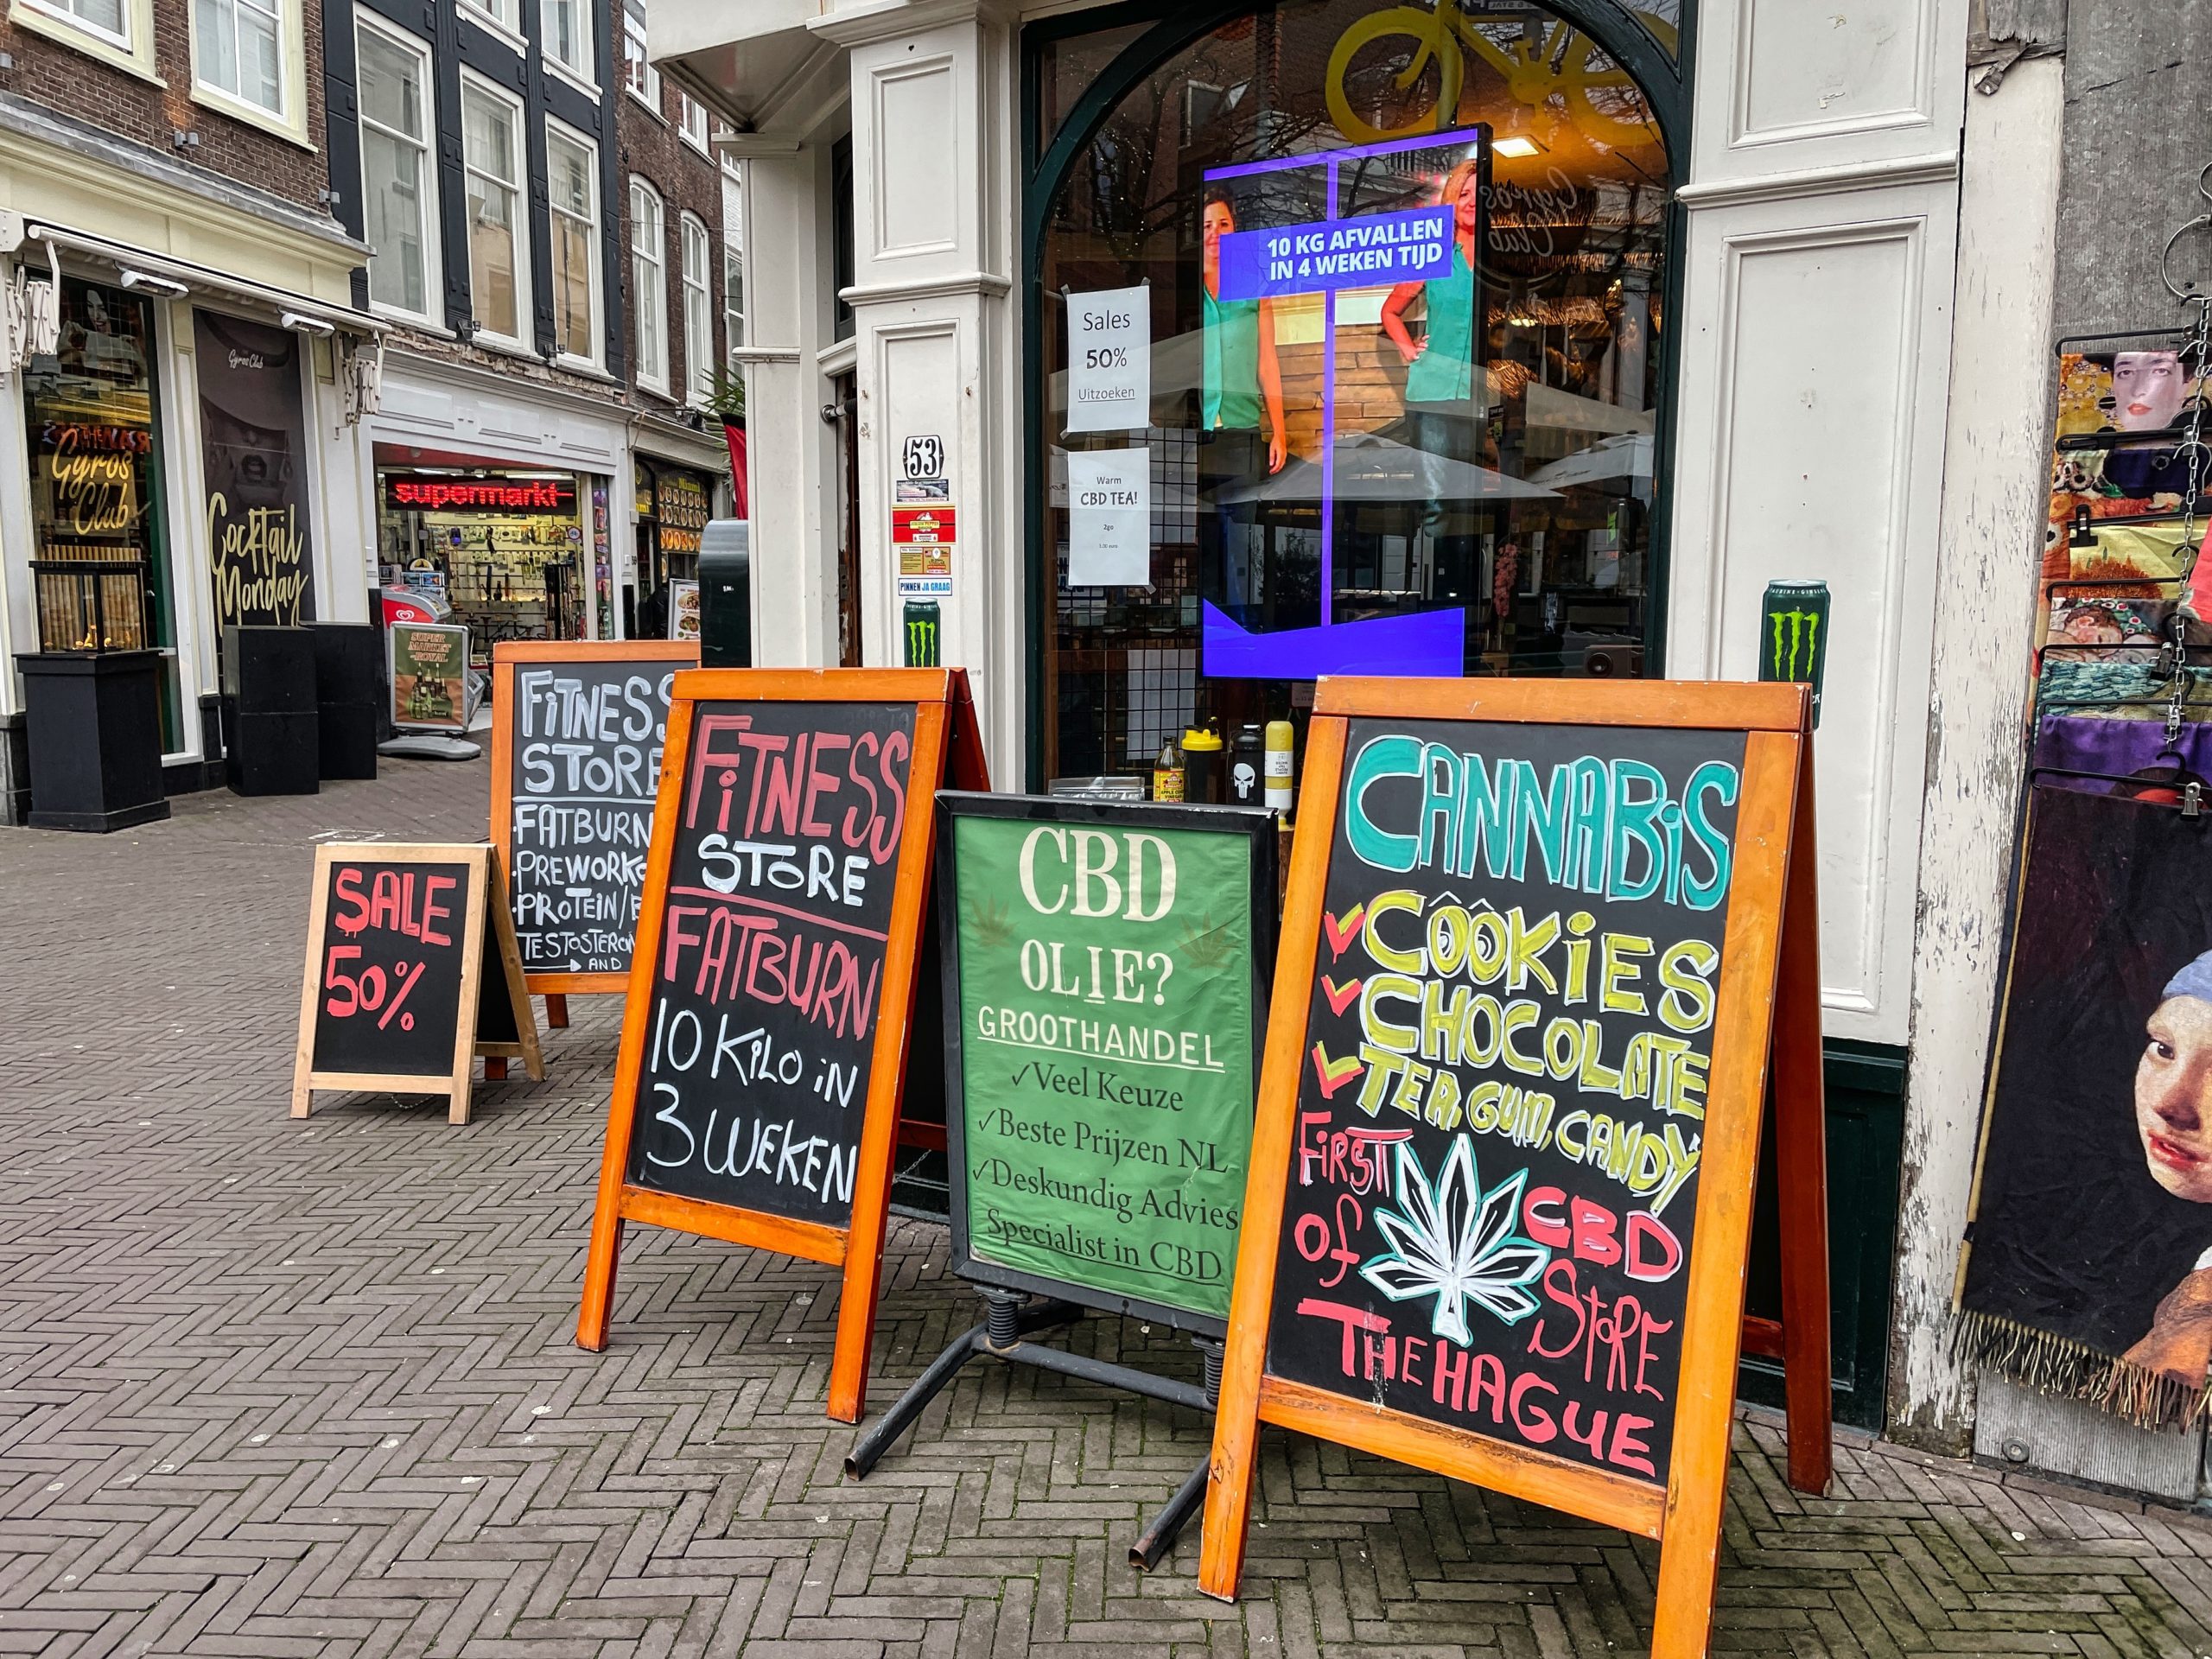 Gyros
Club
Gyros Club
Cocktail
Monday
supermarkt
SUPER
MARKET
ROYAL
10 KG AFVALLEN
IN 4 WEKEN TIJD
Gyros
Club
Sales
50%
Uitzoeken
Warm
CBD TEA!
2go
53
PINNEN JA GRAAG
SALE
50%
FITNESS
STORE
FATBURN
PREWORKO
PROTEIN/
TESTOSTERON
AND
FITNESS
STORE
FATBURN
10 KILO IN
3 WEKEN
CBD
OLIE?
GROOTHANDEL
✓Veel Keuze
✓Beste Prijzen NL
✓Deskundig Advies
Specialist in CBD
CANNABiS
✓COOKiES
✓CHOCOLATE
✓TEA, GUM, CANDY
FiRST CBD
of STORE
THE HAGUE